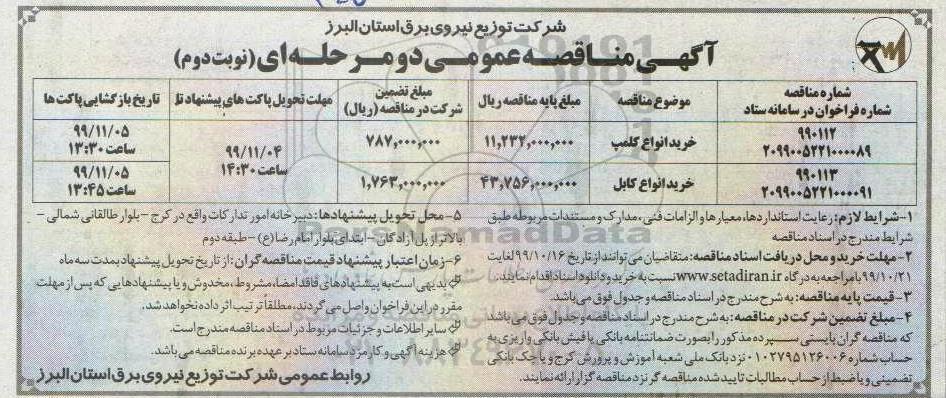 شرکت توزیع نیروی برق استان البرز
آگهی مناقصه عمومی دو مرحله‌ای (نوبت دوم)
شماره مناقصه
شماره فراخوان در سامانه ستاد
موضوع مناقصه
مبلغ پایه مناقصه ریال
مبلغ تضمین
شرکت در مناقصه (ریال)
مهلت تحویل پاکت های پیشنهاد تا
تاریخ بازگشایی پاکت ها
۹۹۰۱۱۲
۲۰۹۹۰۰۵۲۲۱۰۰۰۰۸۹
خرید انواع کلمپ
۱۱,۲۳۲,۰۰۰,۰۰۰
۷۸۷,۰۰۰,۰۰۰
۹۹/۱۱/۰۴
ساعت ۱۴:۳۰
۹۹/۱۱/۰۵
ساعت ۱۳:۳۰
۹۹۰۱۱۳
۲۰۹۹۰۰۵۲۲۱۰۰۰۰۹۱
خرید انواع کابل
۴۳,۷۵۶,۰۰۰,۰۰۰
۱,۷۶۳,۰۰۰,۰۰۰
۹۹/۱۱/۰۵
ساعت ۱۳:۴۵
۱- شرایط لازم: رعایت استانداردها، معیارها و الزامات فنی، مدارک و مستندات مربوطه طبق
شرایط مندرج در اسناد مناقصه
۲- مهلت خرید و محل دریافت اسناد مناقصه: متقاضیان می توانند از تاریخ ۹۹/۱۰/۱۶ لغایت
۹۹/۱۰/۲۱ با مراجعه به درگاه www.setadiran.ir نسبت به خرید و دانلود اسناد اقدام نمایند.
۳- قیمت پایه مناقصه: به شرح مندرج در اسناد مناقصه و جدول فوق می باشد.
۴- مبلغ تضمین شرکت در مناقصه: به شرح مندرج در اسناد مناقصه و جدول فوق می باشد
که مناقصه گران بایستی سپرده مذکور را بصورت ضمانتنامه بانکی یا فیش بانکی واریزی به
حساب شماره ۰۱۰۲۷۹۵۱۲۶۰۰۶ نزد بانک ملی شعبه آموزش و پرورش کرج و یا چک بانکی
تضمینی و یا ضبط از حساب مطالبات تایید شده مناقصه گر نزد مناقصه گزار ارائه نمایند.
۵- محل تحویل پیشنهادها: دبیرخانه امور تدارکات واقع در کرج - بلوار طالقانی شمالی -
بالاتر از پل آزادگان - ابتدای بلوار امام رضا (ع) - طبقه دوم
۶- زمان اعتبار پیشنهاد قیمت مناقصه گران: از تاریخ تحویل پیشنهاد بمدت سه ماه
بدیهی است به پیشنهادهای فاقد امضا، مشروط، مخدوش و یا پیشنهادهایی که پس از مهلت
مقرر در این فراخوان واصل می گردند، مطلقاً ترتیب اثر داده نخواهد شد.
سایر اطلاعات و جزئیات مربوط در اسناد مناقصه مندرج است.
هزینه آگهی و کارمزد سامانه ستاد بر عهده برنده مناقصه می باشد.
روابط عمومی شرکت توزیع نیروی برق استان البرز
ParsNamadData